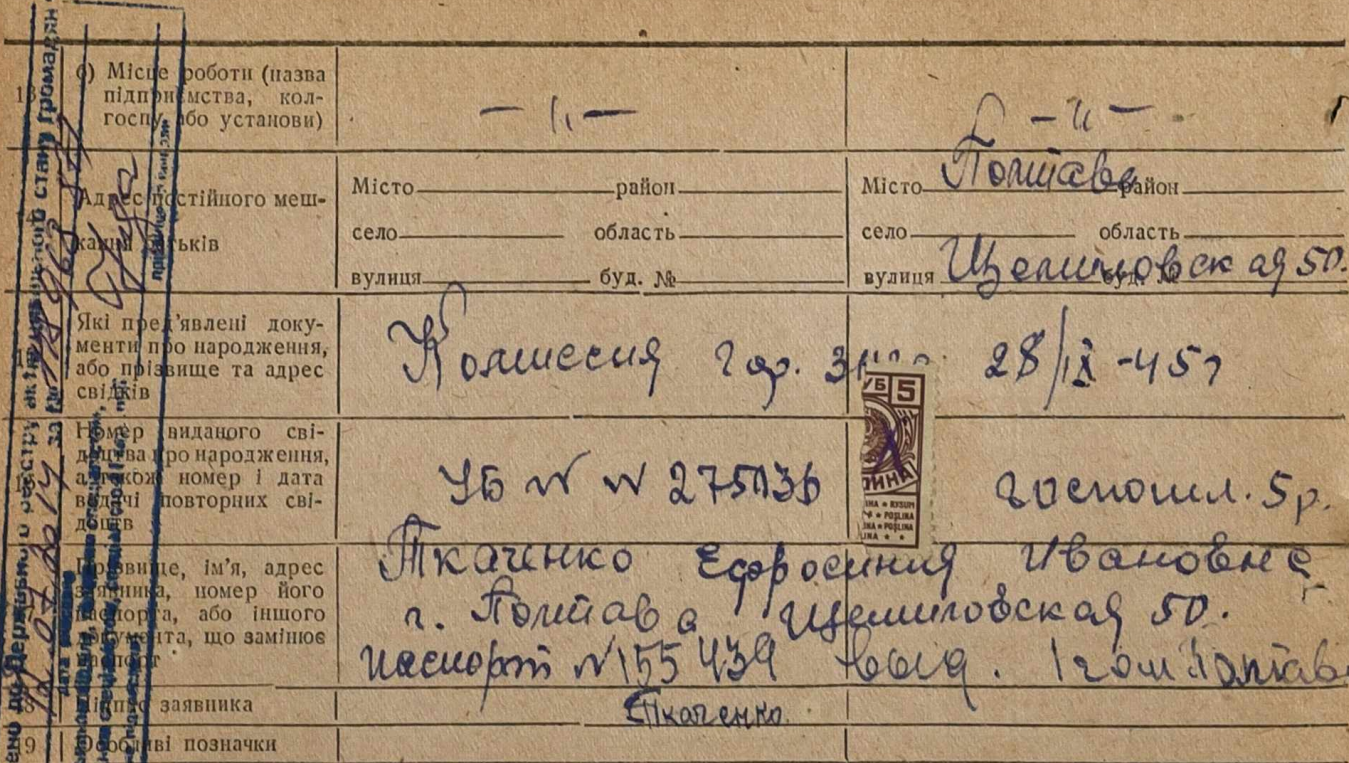 б) Місце роботи (назва
підприємства, кол-
госпу або установи)
— " —
— " —
Адрес постійного меш-
кання батьків
Місто район
село область
вулиця буд. №
Місто Полтава район
село область
вулиця Щемиловская 50. буд. №
Які пред'явлені доку-
менти про народження,
або прізвище та адрес
свідків
Комиссия гор. 28/IX-45 г
Номер виданого сві-
доцтва про народження,
а також номер і дата
видачі повторних сві-
доцтв
УБ № 275036
5
госпошл. 5 р.
Прізвище, ім'я, адрес
заявника, номер його
паспорта, або іншого
документа, що замінює
паспорт
Ткаченко Ефросиния Ивановна
г. Полтава Щемиловская 50.
паспорт № 155439 выд. 1 гом Полтав
Підпис заявника
Ткаченко
19 Особливі позначки